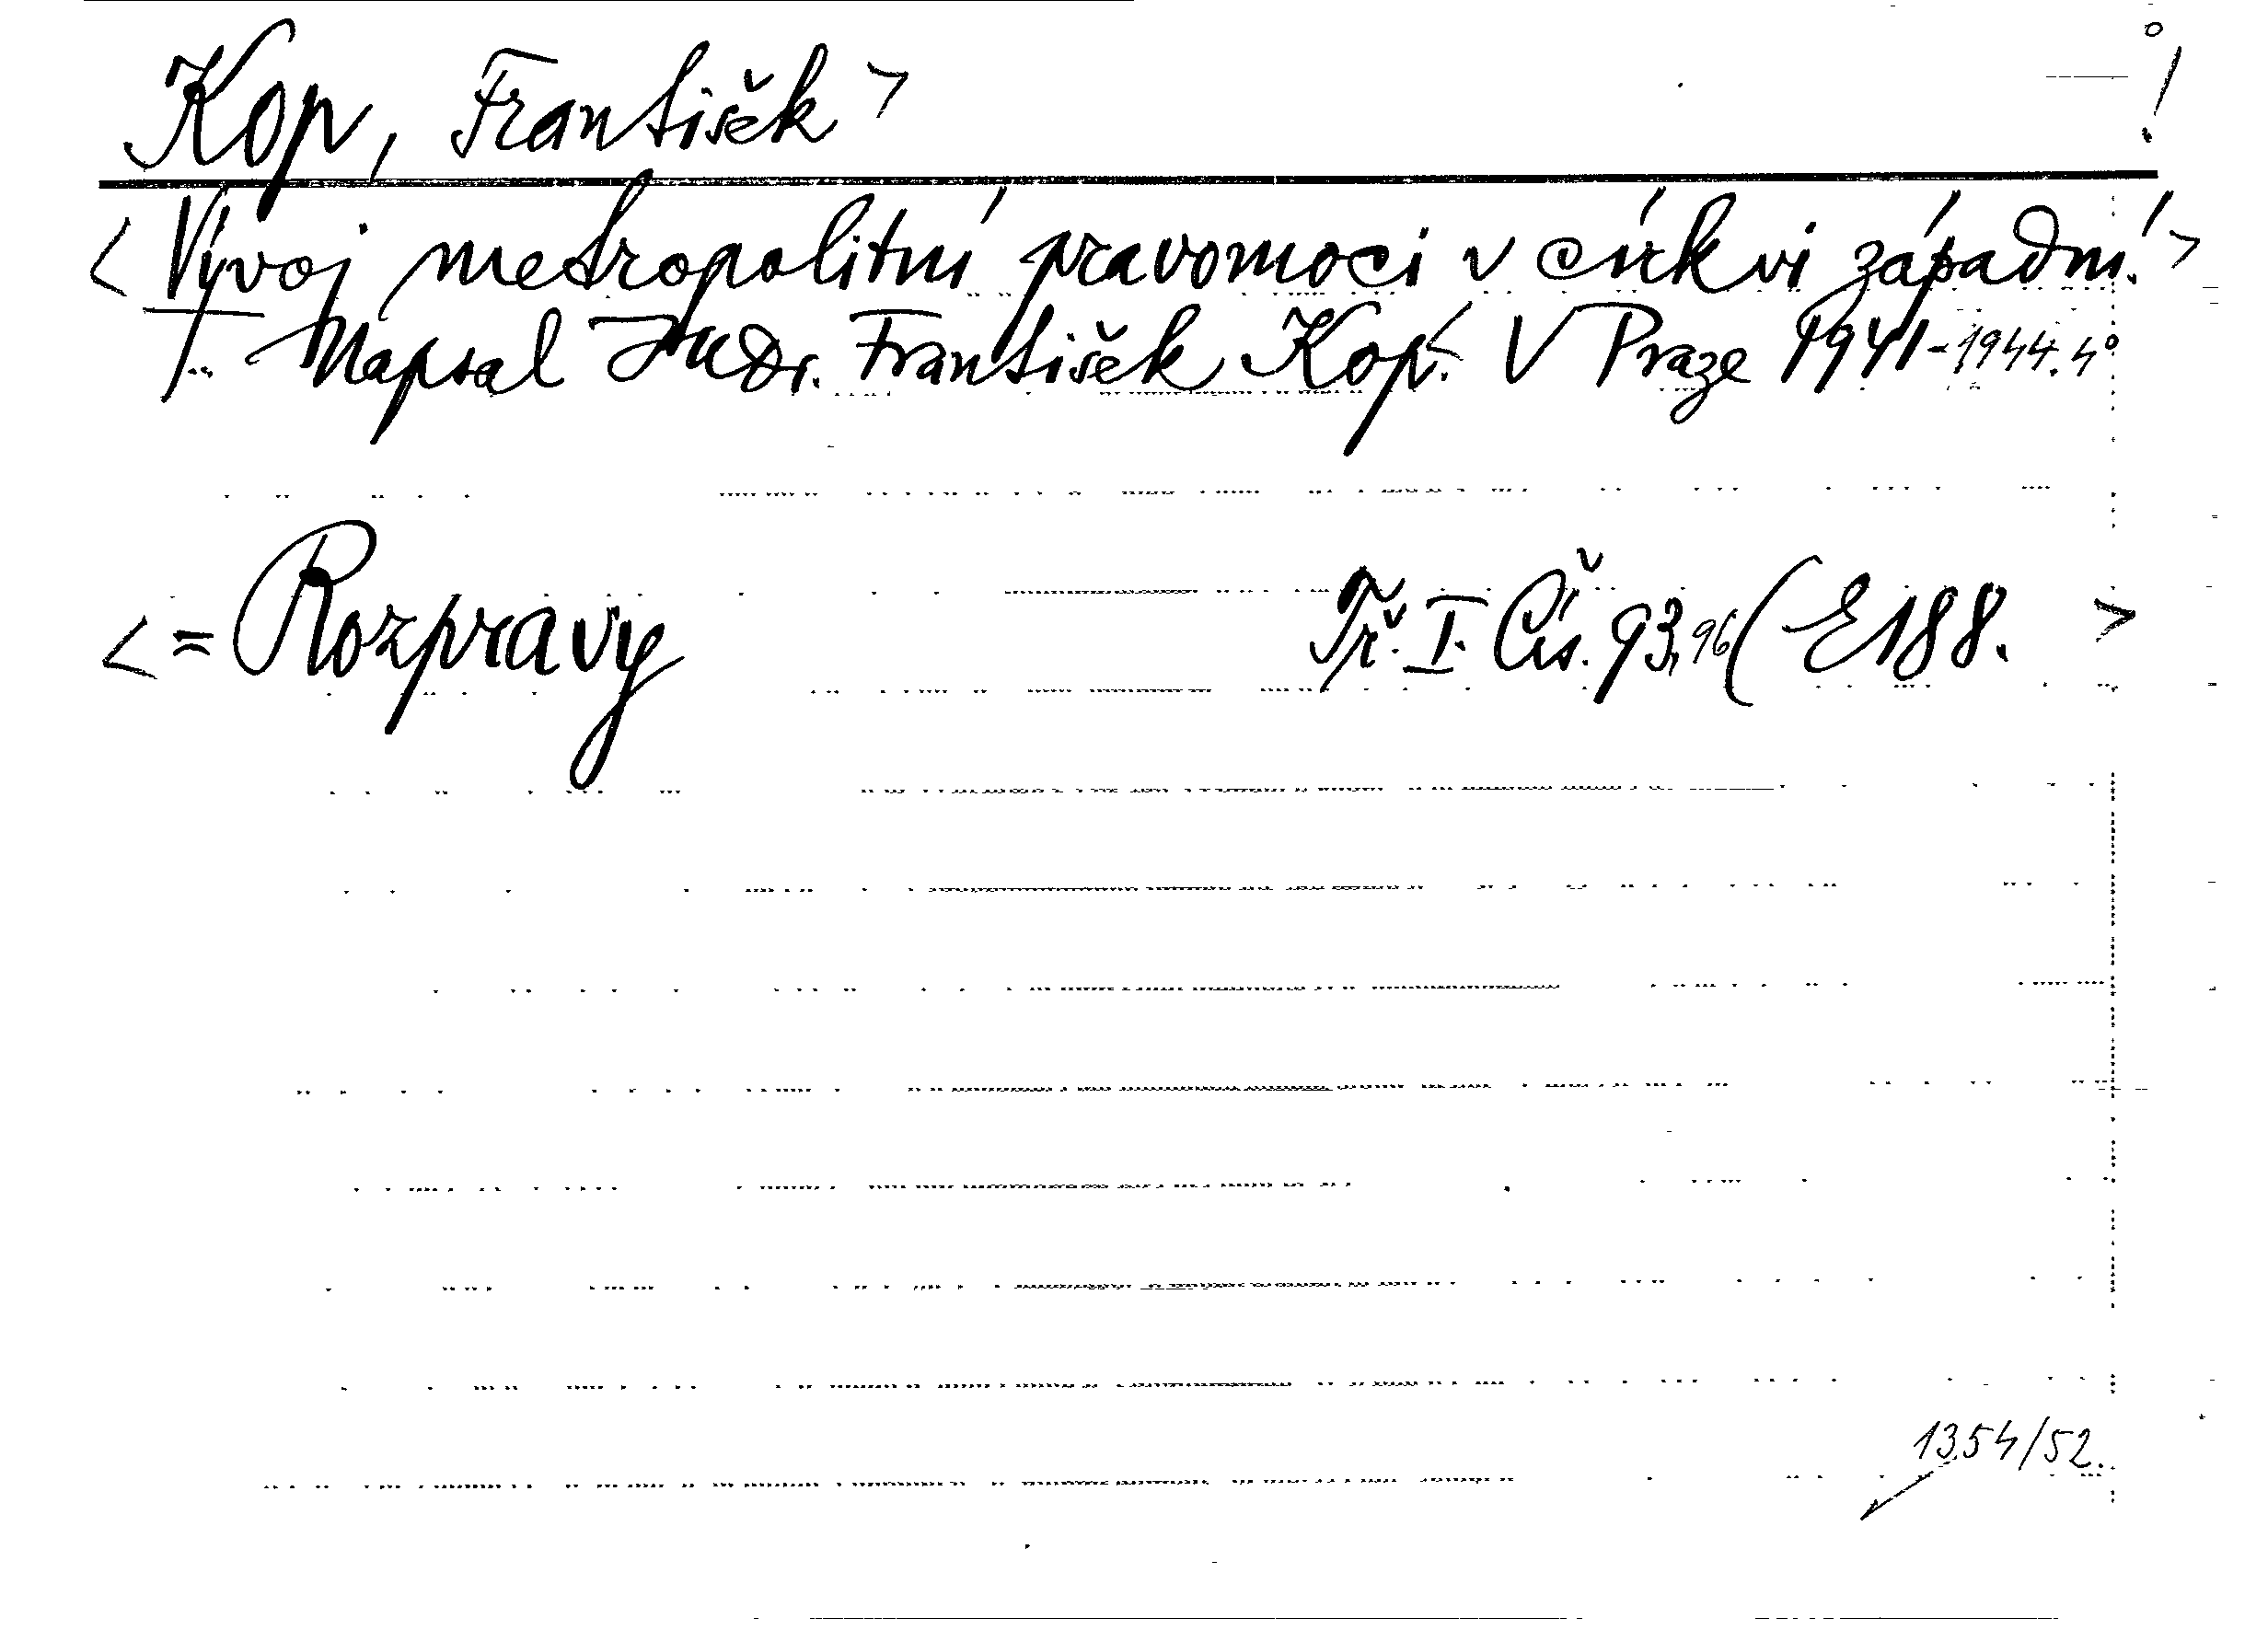 Kop, František > !
< Vývoj metropolitní pravomoci v církvi západní. >
- Napsal JUDr. František Kop. V Praze 1941-1944. 4°
< = Rozpravy Tř. I. Čís. 93,96 ( E 188. >
1354/52.